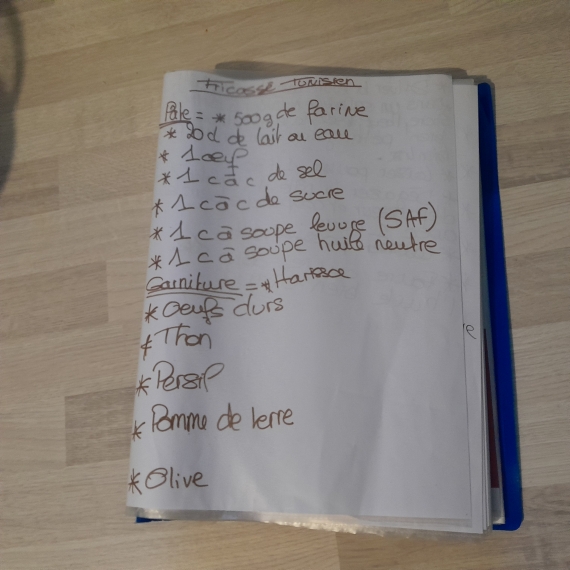 Fricassé Tunisien
Pâte = * 500g de farine
* 20cl de lait ou eau
* 1 oeuf
* 1 c à c de sel
* 1 c à c de sucre
* 1 c à soupe levure (SAF)
* 1 c à soupe huile neutre
Garniture = * Harissa
* Oeufs durs
* Thon
* Persil
* Pomme de terre
* Olive
e